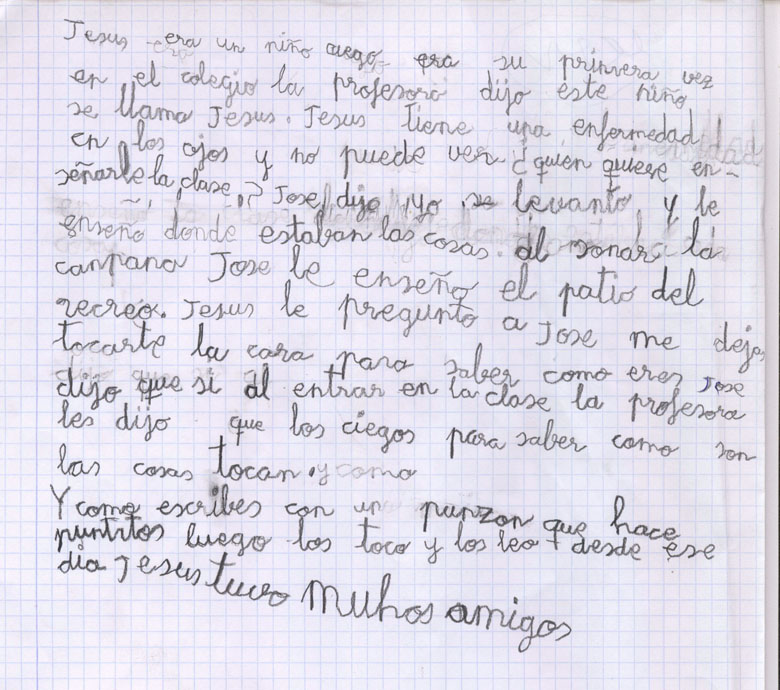 Jesus era un niño ciego era su primera vez
en el colegio la profesora dijo este niño
se llama Jesus. Jesus tiene una enfermedad
en los ojos y no puede ver ¿quien quiere en-
señarle la clase? Jose dijo yo se levanto y le
enseño donde estaban las cosas. al sonar la
canpana Jose le enseño el patio del
recreo. Jesus le pregunto a Jose me dejas
tocarte la cara para saber como eres Jose
dijo que si al entrar en la clase la profesora
les dijo que los ciegos para saber como son
las cosas tocan. y como
Y como escribes con un punzon que hace
puntitos luego los toco y los leo desde ese
dia Jesus tuvo muhos amigos